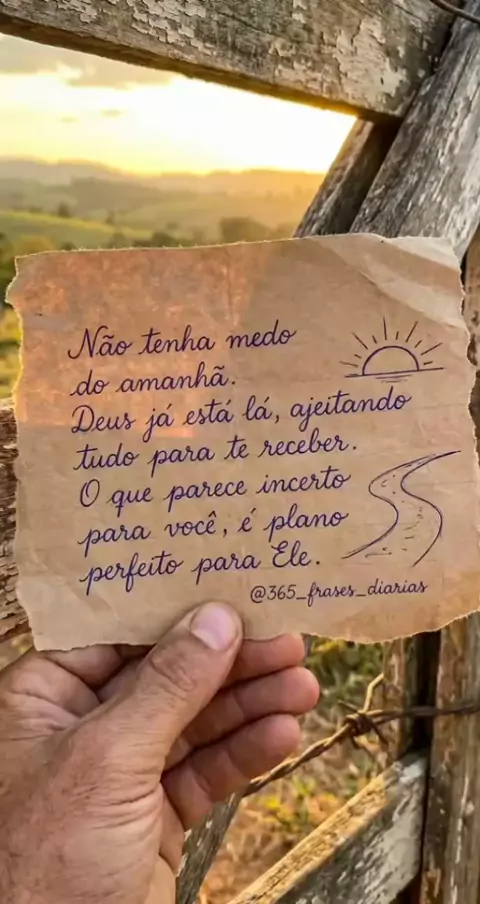 Não tenha medo
do amanhã.
Deus já está lá, ajeitando
tudo para te receber.
O que parece incerto
para você, é plano
perfeito para Ele.
@365_frases_diarias